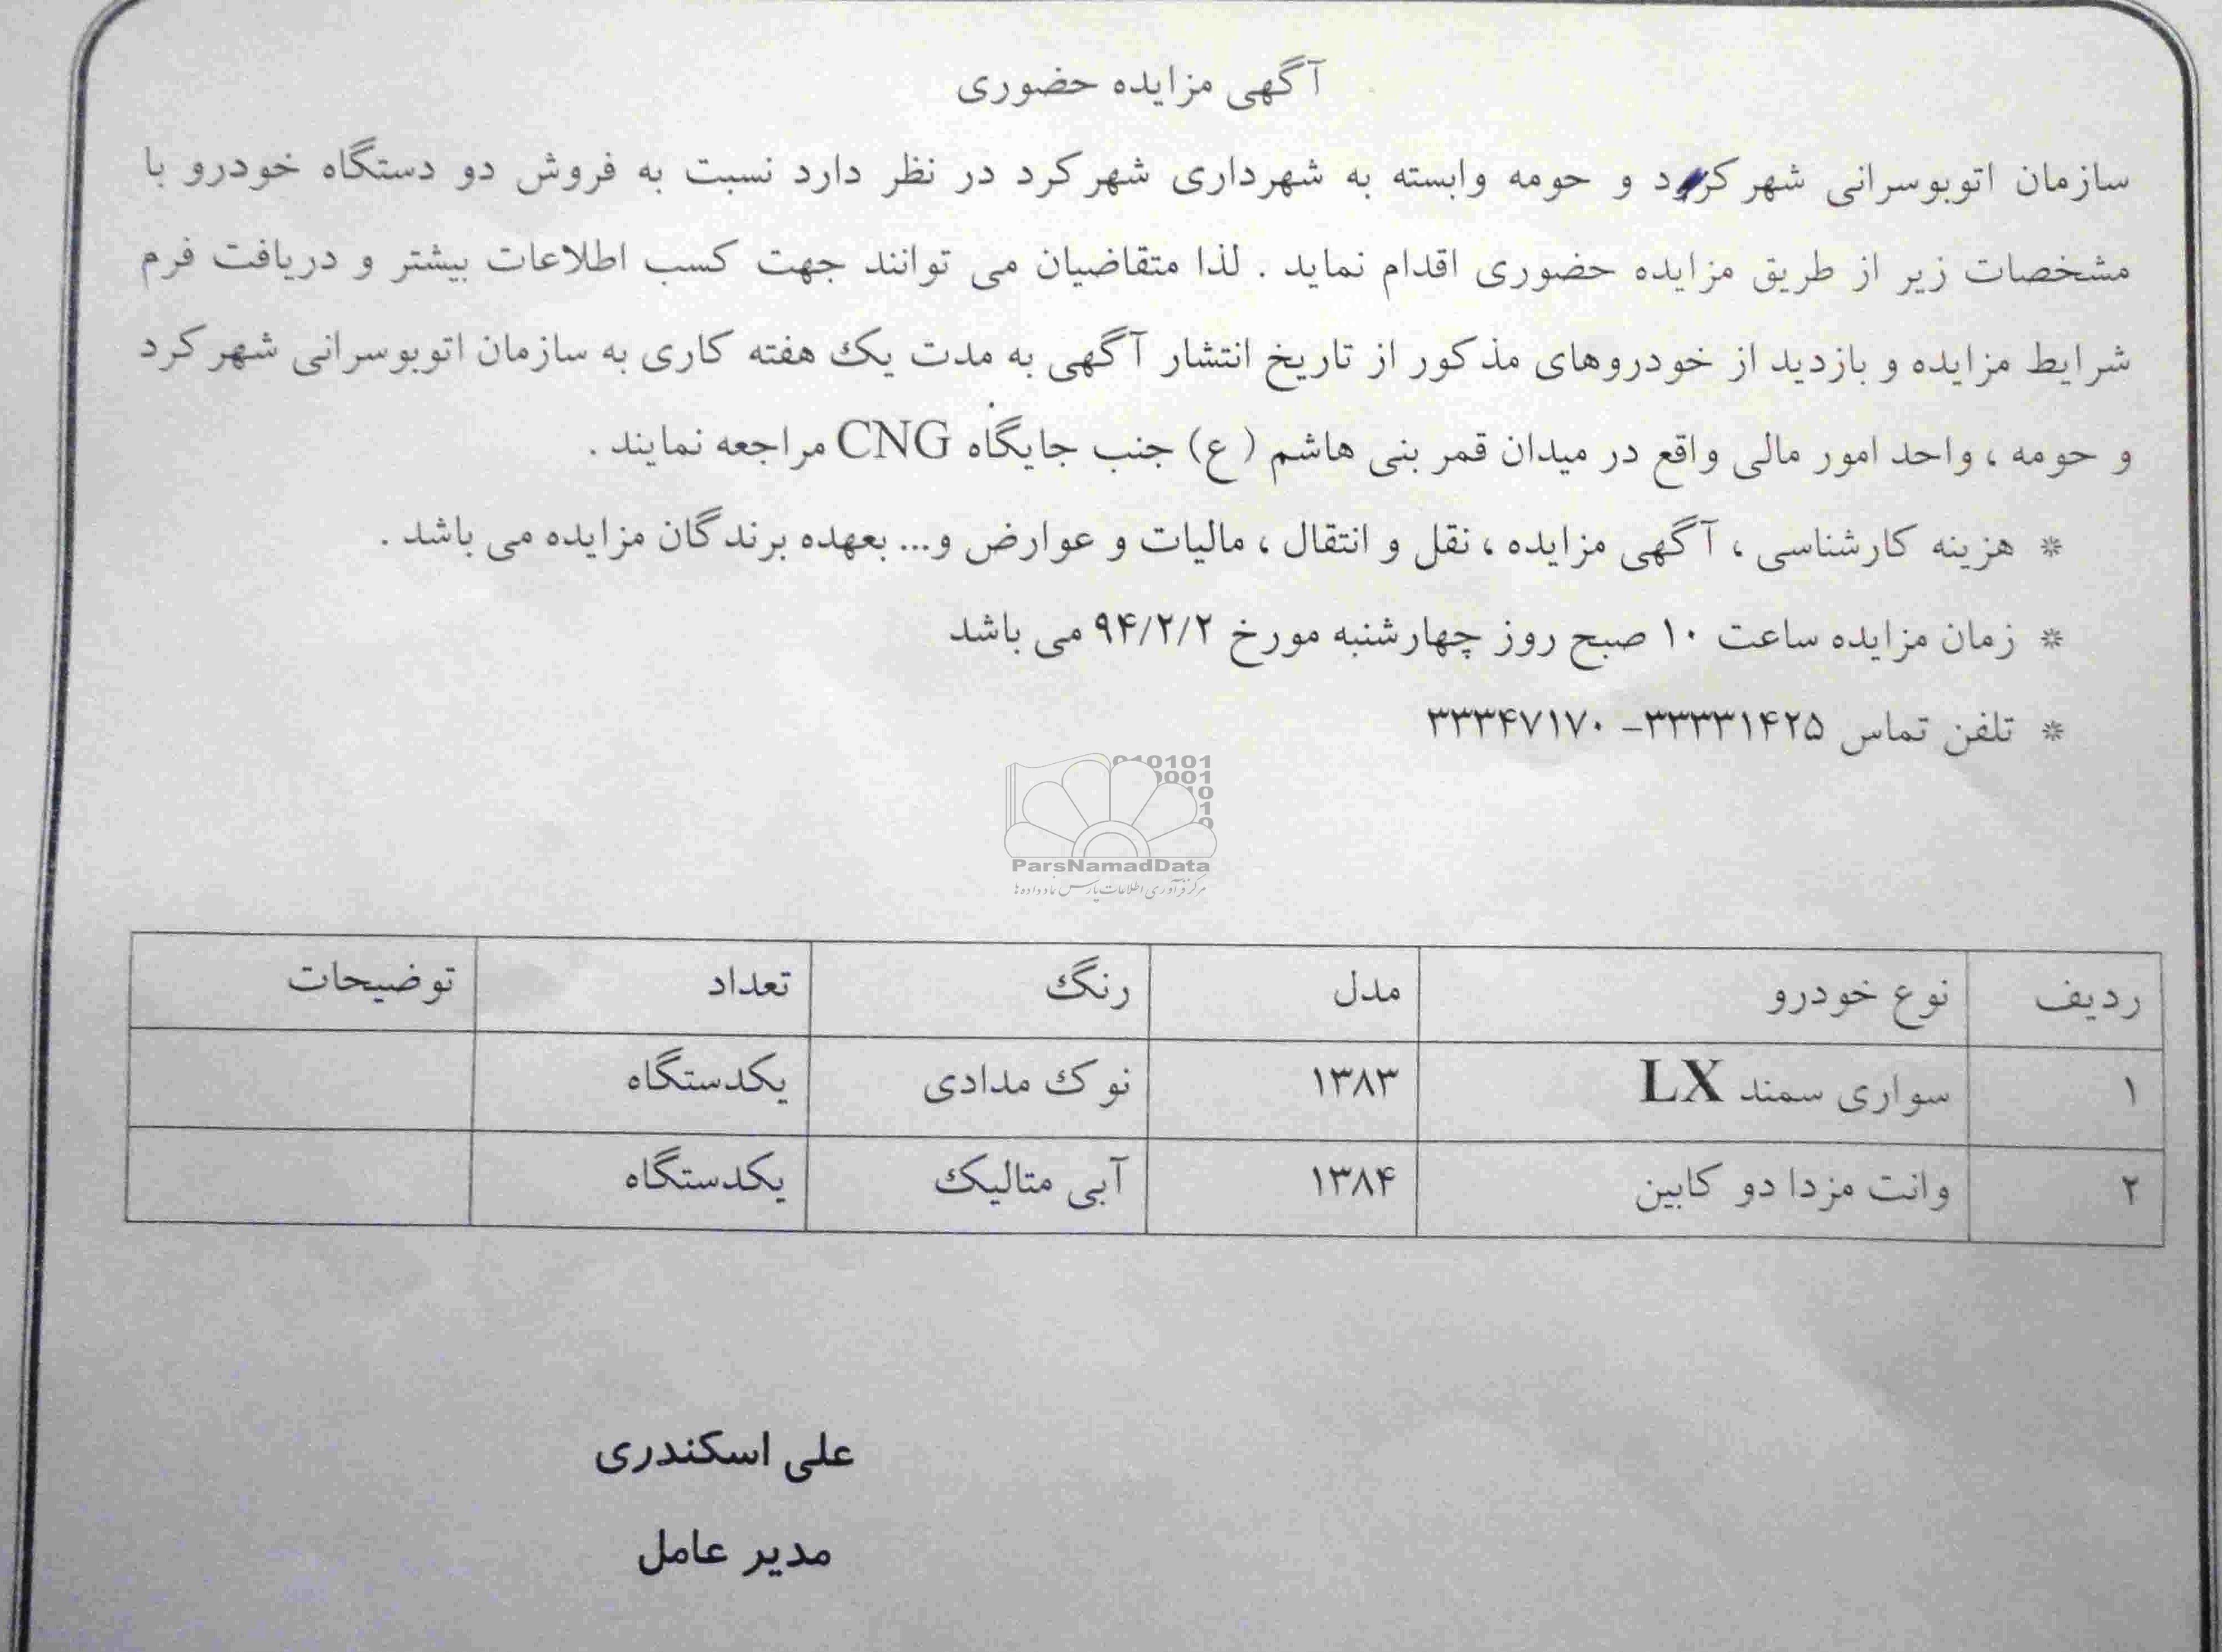 آگهی مزایده حضوری
سازمان اتوبوسرانی شهرکرد و حومه وابسته به شهرداری شهرکرد در نظر دارد نسبت به فروش دو دستگاه خودرو با
مشخصات زیر از طریق مزایده حضوری اقدام نماید . لذا متقاضیان می توانند جهت کسب اطلاعات بیشتر و دریافت فرم
شرایط مزایده و بازدید از خودروهای مذکور از تاریخ انتشار آگهی به مدت یک هفته کاری به سازمان اتوبوسرانی شهرکرد
و حومه ، واحد امور مالی واقع در میدان قمر بنی هاشم (ع) جنب جایگاه CNG مراجعه نمایند .
* هزینه کارشناسی ، آگهی مزایده ، نقل و انتقال ، مالیات و عوارض و... بعهده برندگان مزایده می باشد .
* زمان مزایده ساعت ۱۰ صبح روز چهارشنبه مورخ ۹۴/۲/۲ می باشد
* تلفن تماس ۳۳۳۳۱۴۲۵- ۳۳۳۴۷۱۷۰
010101
0001
10
1
0
ParsNamadData
مرکز فرآوری اطلاعات پارس نماد داده ها
ردیف نوع خودرو مدل رنگ تعداد توضیحات
۱ سواری سمند LX ۱۳۸۳ نوک مدادی یکدستگاه
۲ وانت مزدا دو کابین ۱۳۸۴ آبی متالیک یکدستگاه
علی اسکندری
مدیر عامل